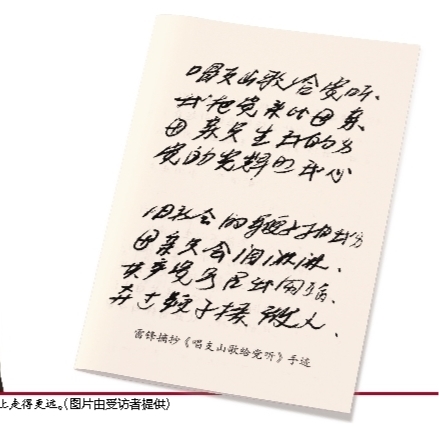 唱支山歌给党听、
我把党来比母亲、
母亲只生我的身
党的光辉照我心
旧社会的鞭子抽我身
母亲只会泪淋淋、
共产党号召我闹革命、
夺过鞭子揍敌人、
雷锋摘抄《唱支山歌给党听》手迹
上走得更远。(图片由受访者提供)